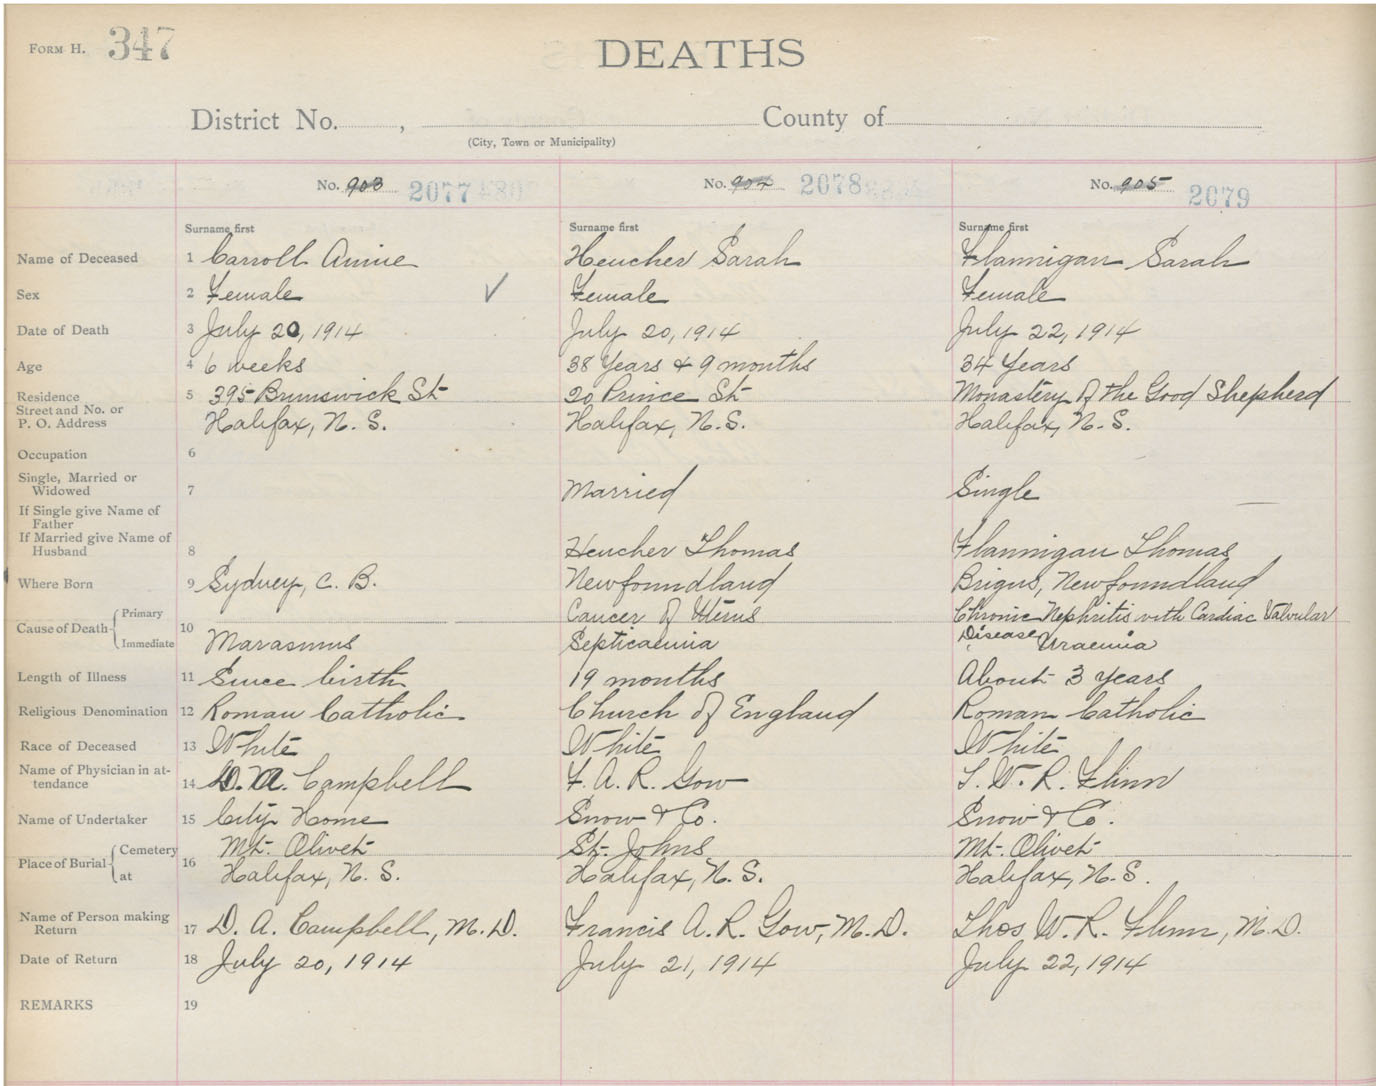 FORM H. 347
DEATHS
District No. , County of
(City, Town or Municipality)
No. 903 2077 No. 904 2078 No. 905 2079
Surname first Surname first Surname first
Name of Deceased 1 Carroll Annie Heucher Sarah Flannigan Sarah
Sex 2 Female ✓ Female Female
Date of Death 3 July 20, 1914 July 20, 1914 July 22, 1914
Age 4 6 weeks 38 Years & 9 months 34 Years
Residence 5 395 Brunswick St 20 Prince St Monastery of the Good Shepherd
Street and No. or
P. O. Address Halifax, N. S. Halifax, N. S. Halifax, N. S.
Occupation 6
Single, Married or
Widowed 7 Married Single
If Single give Name of
Father
If Married give Name of
Husband 8 Heucher Thomas Flannigan Thomas
Where Born 9 Sydney, C. B. Newfoundland Brigus, Newfoundland
Cause of Death Primary 10 Cancer of Uterus Chronic Nephritis with Cardiac Valvular
Immediate Marasmus Septicaemia Disease Uraemia
Length of Illness 11 Since birth 19 months About 3 years
Religious Denomination 12 Roman Catholic Church of England Roman Catholic
Race of Deceased 13 White White White
Name of Physician in at-
tendance 14 D. A. Campbell F. A. R. Gow T. W. R. Flinn
Name of Undertaker 15 City Home Snow & Co. Snow & Co.
Place of Burial Cemetery 16 Mt. Olivet St. Johns Mt. Olivet
at Halifax, N. S. Halifax, N. S. Halifax, N. S.
Name of Person making
Return 17 D. A. Campbell, M. D. Francis A. R. Gow, M. D. Thos W. R. Flinn, M. D.
Date of Return 18 July 20, 1914 July 21, 1914 July 22, 1914
REMARKS 19